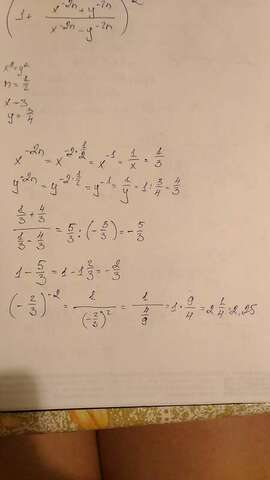 (1 + (x^-2n + y^-2n)/(x^-2n - y^-2n))^-2
n = 1/2
x = 3
y = 3/4
x^-2n = x^-2·1/2 = x^-1 = 1/x = 1/3
y^-2n = y^-2·1/2 = y^-1 = 1/y = 1 : 3/4 = 4/3
(1/3 + 4/3)/(1/3 - 4/3) = 5/3 : (-3/3) = -5/3
1 - 5/3 = 1 - 1 2/3 = -2/3
(-2/3)^-2 = 1/(-2/3)^2 = 1/(4/9) = 1 · 9/4 = 2 1/4 = 2,25